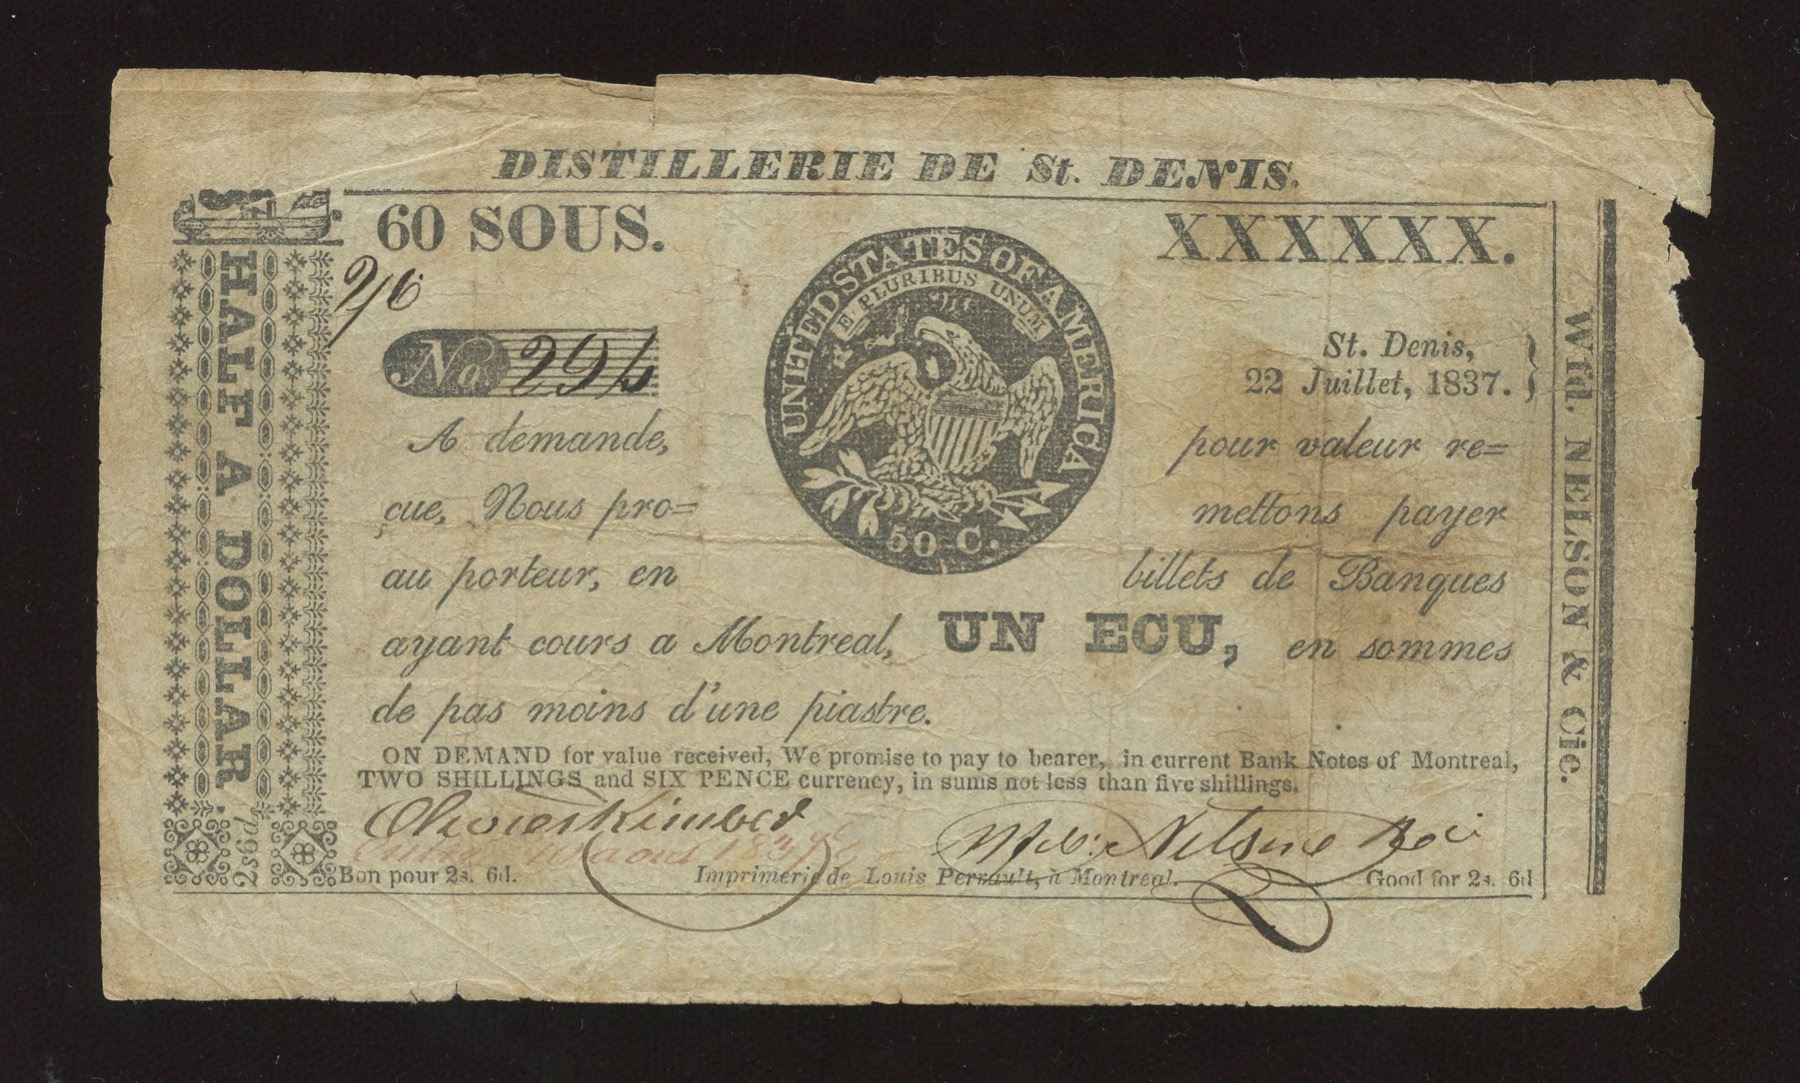 DISTILLERIE DE St. DENIS.
60 SOUS.
XXXXXX.
2/6
UNITED STATES OF AMERICA
E PLURIBUS UNUM
50 C.
No. 294
St. Denis,
22 Juillet, 1837.
A demande, pour valeur re=
çue, Nous pro= mettons payer
au porteur, en billets de Banques
ayant cours a Montreal, UN ECU, en sommes
de pas moins d'une piastre.
ON DEMAND for value received, We promise to pay to bearer, in current Bank Notes of Montreal,
TWO SHILLINGS and SIX PENCE currency, in sums not less than five shillings.
Wfd. Nelson & Cie
Bon pour 2s. 6d.
Imprimerie de Louis Perrault, à Montreal.
Good for 2s. 6d
HALF A DOLLAR.
2s6d
Wfd. NELSON & Cie.